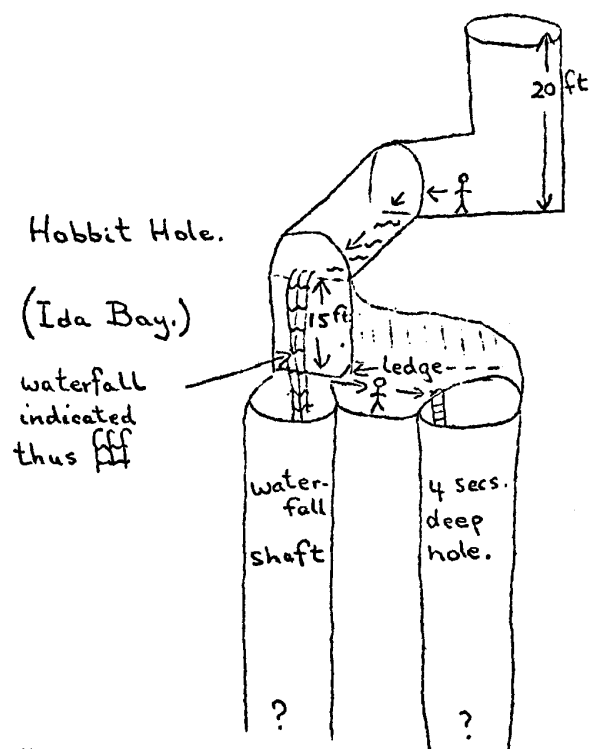 20 ft
Hobbit Hole.
(Ida Bay.)
15 ft.
ledge
waterfall
indicated
thus
water-
fall
shaft
4 secs.
deep
hole.
?
?